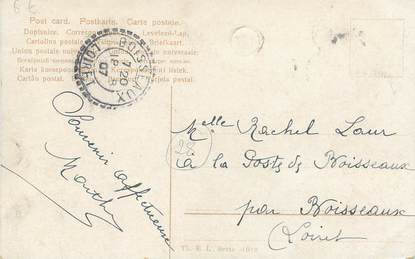 6 €
Post card. Postkarte. Carte postale.
Dopisnice. Correspon
Levelezö-Lap.
Cartolina postale
Brjefkaart.
Union postale
universelle
Karta korespon
listek.
Cartão postal
BOISSEAUX
7 20
07
LOIRET
Souvenir affectueux
Marthe
Melle Rachel Laur
28
à la Poste de Boisseaux
par Boisseaux
Loiret
Th. E. L., Serie